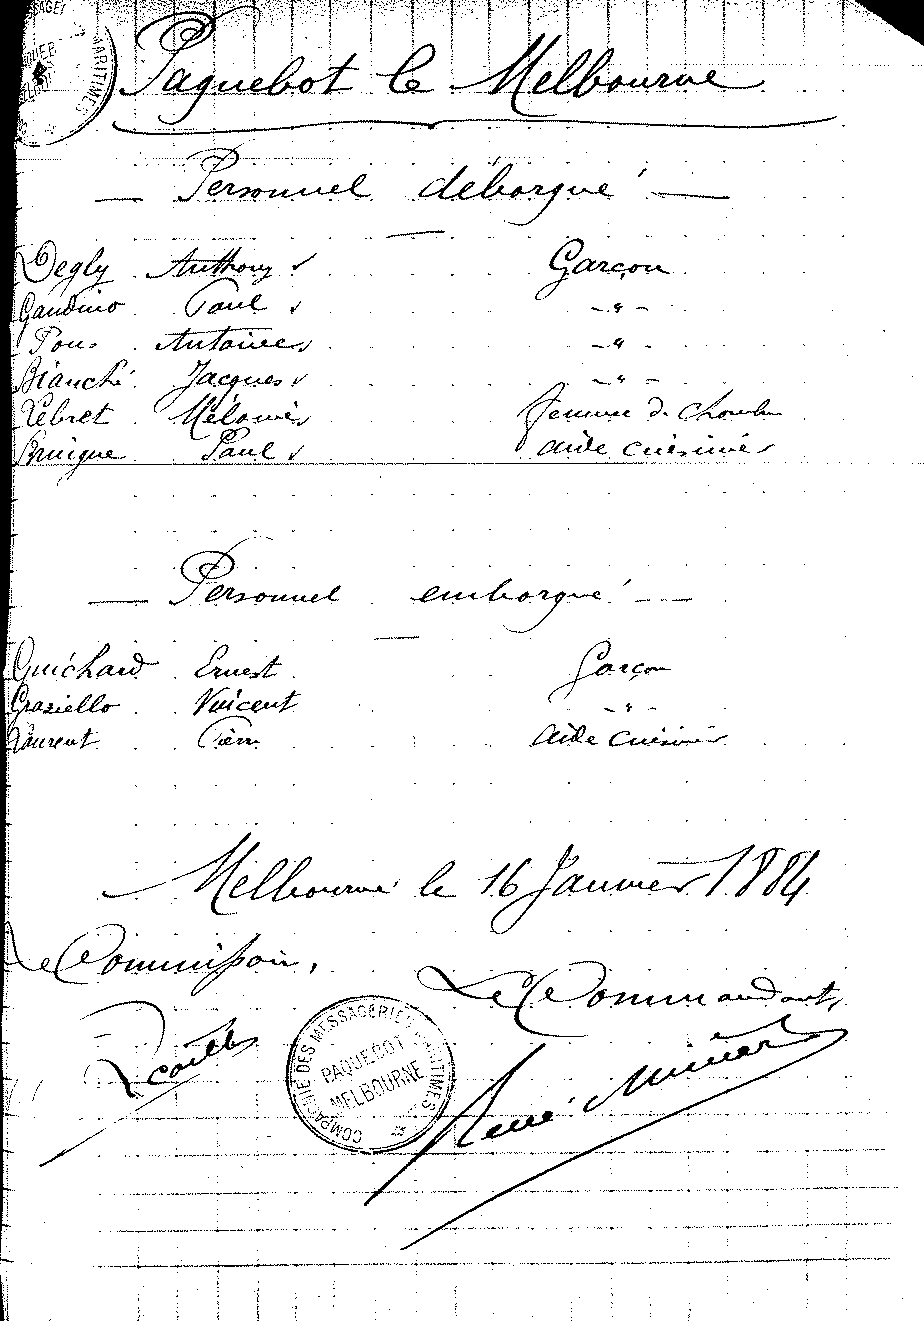 Paquebot le Melbourne
— Personnel débarqué —
Degly Anthony Garçon
Gaudino Paul - " -
Pons Antoine - " -
Bianché Jacques - " -
Lebret Mélanie femme de chambre
Paul aide cuisinier
— Personnel embarqué —
Guichard Ernest Garçon
Graziello Vincent - " -
Laurent Pierre aide cuisinier
Melbourne le 16 Janvier 1884
Le Commissaire,
Le Commandant,
COMPAGNIE DES MESSAGERIES MARITIMES
PAQUEBOT
MELBOURNE
René